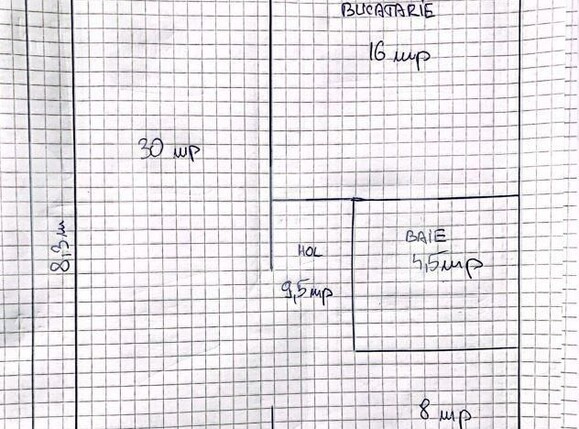 BUCATARIE
16 mp
30 mp
8,3 m
HOL
9,5 mp
BAIE
4,5 mp
8 mp